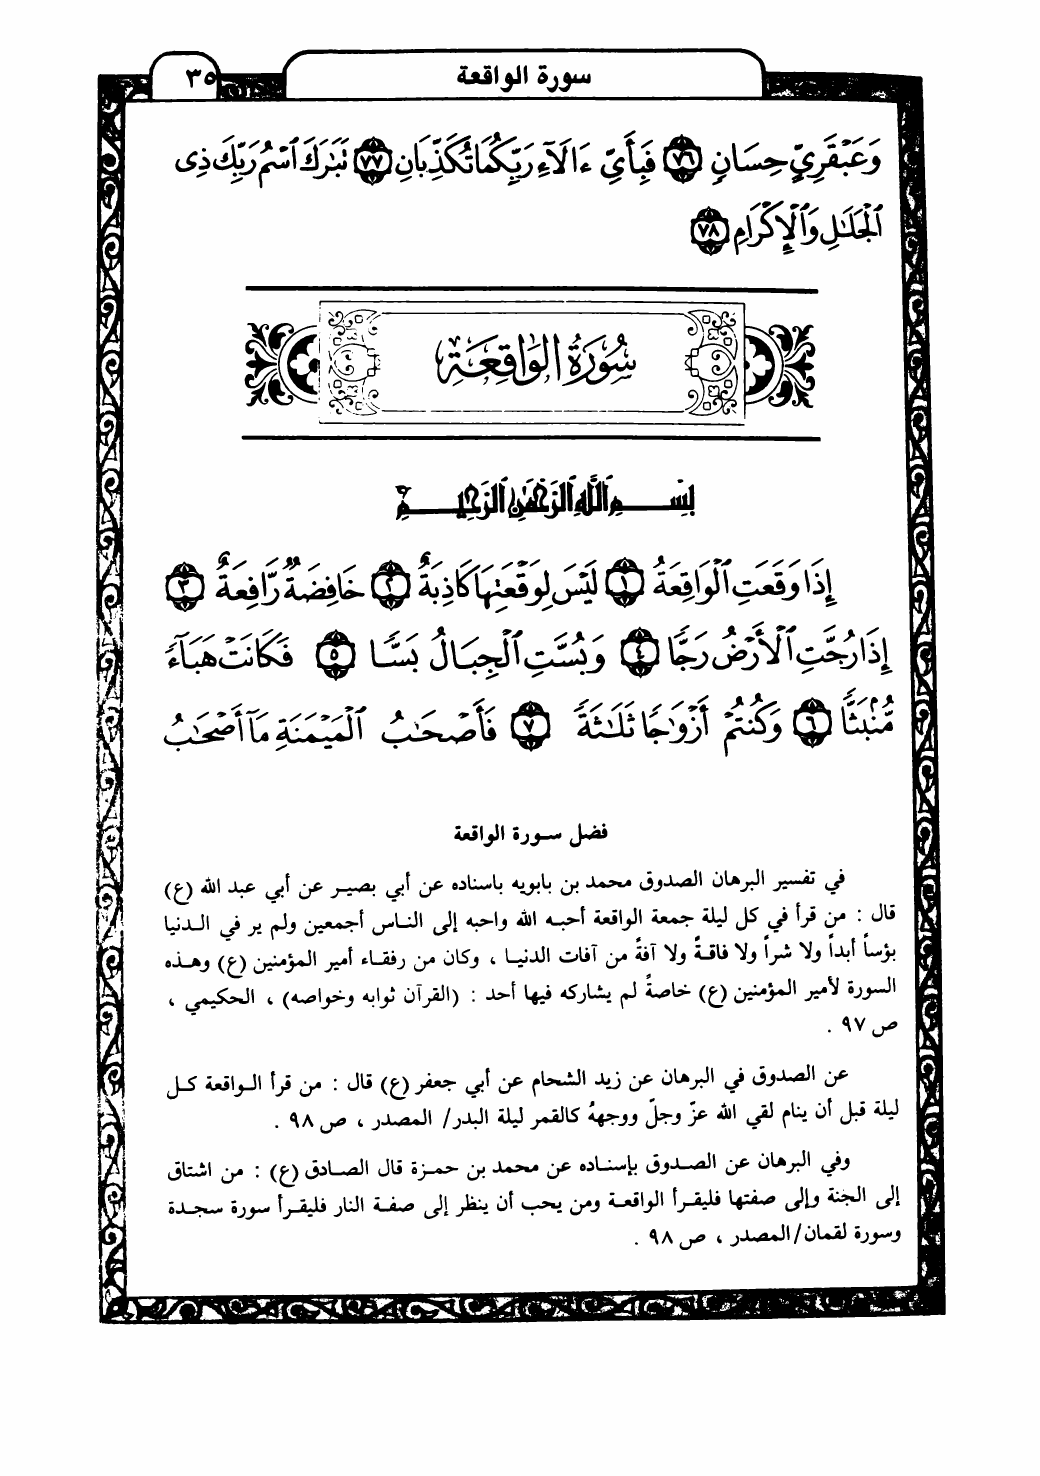 سورة الواقعة
٣٥
وَعَبْقَرِيٍّ حِسَانٍ ٧٦ فَبِأَيِّ ءَالَآءِ رَبِّكُمَا تُكَذِّبَانِ ٧٧ تَبَٰرَكَ ٱسْمُ رَبِّكَ ذِى
ٱلْجَلَٰلِ وَٱلْإِكْرَامِ ٧٨
سُورَةُ الوَاقِعَة
بِسْمِ ٱللَّهِ ٱلرَّحْمَٰنِ ٱلرَّحِيمِ
إِذَا وَقَعَتِ ٱلْوَاقِعَةُ ١ لَيْسَ لِوَقْعَتِهَا كَاذِبَةٌ ٢ خَافِضَةٌ رَّافِعَةٌ ٣
إِذَا رُجَّتِ ٱلْأَرْضُ رَجًّا ٤ وَبُسَّتِ ٱلْجِبَالُ بَسًّا ٥ فَكَانَتْ هَبَآءً
مُّنۢبَثًّا ٦ وَكُنتُمْ أَزْوَٰجًا ثَلَٰثَةً ٧ فَأَصْحَٰبُ ٱلْمَيْمَنَةِ مَآ أَصْحَٰبُ
فضل سورة الواقعة
في تفسير البرهان الصدوق محمد بن بابويه باسناده عن أبي بصير عن أبي عبد الله (ع)
قال : من قرأ في كل ليلة جمعة الواقعة أحبه الله واحبه إلى الناس أجمعين ولم ير في الدنيا
بؤساً أبداً ولا شراً ولا فاقةً ولا آفةً من آفات الدنيا ، وكان من رفقاء أمير المؤمنين (ع) وهذه
السورة لأمير المؤمنين (ع) خاصةً لم يشاركه فيها أحد : (القرآن ثوابه وخواصه) ، الحكيمي ،
ص ٩٧ .
عن الصدوق في البرهان عن زيد الشحام عن أبي جعفر (ع) قال : من قرأ الواقعة كل
ليلة قبل أن ينام لقي الله عزّ وجلّ ووجههُ كالقمر ليلة البدر/ المصدر ، ص ٩٨ .
وفي البرهان عن الصدوق بإسناده عن محمد بن حمزة قال الصادق (ع) : من اشتاق
إلى الجنة وإلى صفتها فليقرأ الواقعة ومن يحب أن ينظر إلى صفة النار فليقرأ سورة سجدة
وسورة لقمان/المصدر ، ص ٩٨ .